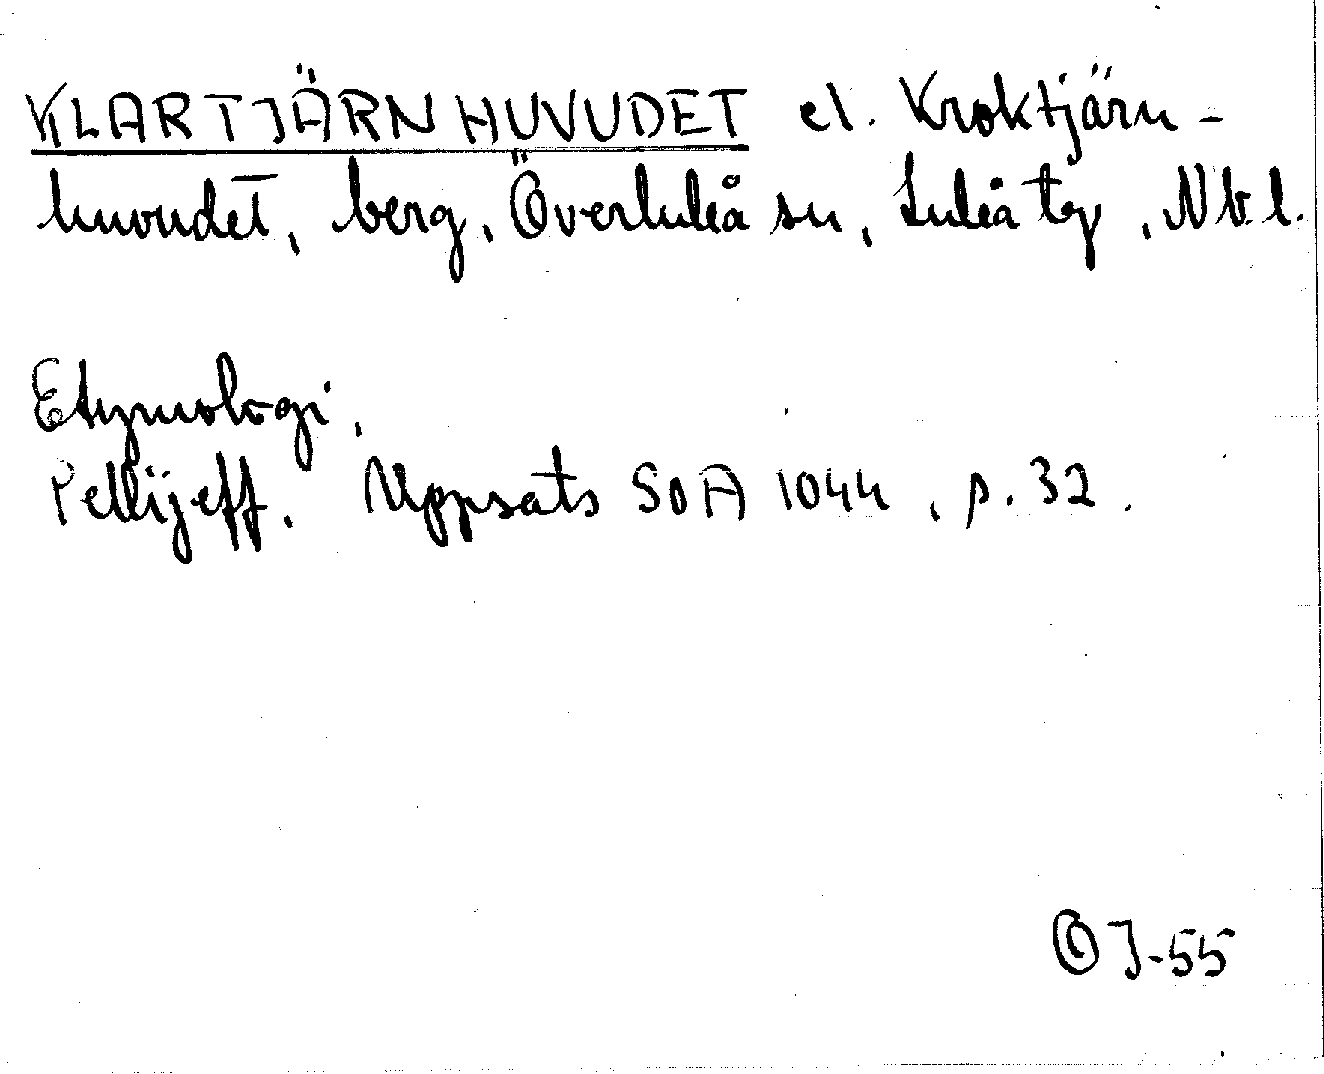 KLARTJÄRNHUVUDET el. Kroktjärn-
huvudet, berg, Överluleå sn, Luleå tg, Nbl.
Etymologi.
Pellijeff. Uppsats SOA 1044, p. 32.
OJ-55